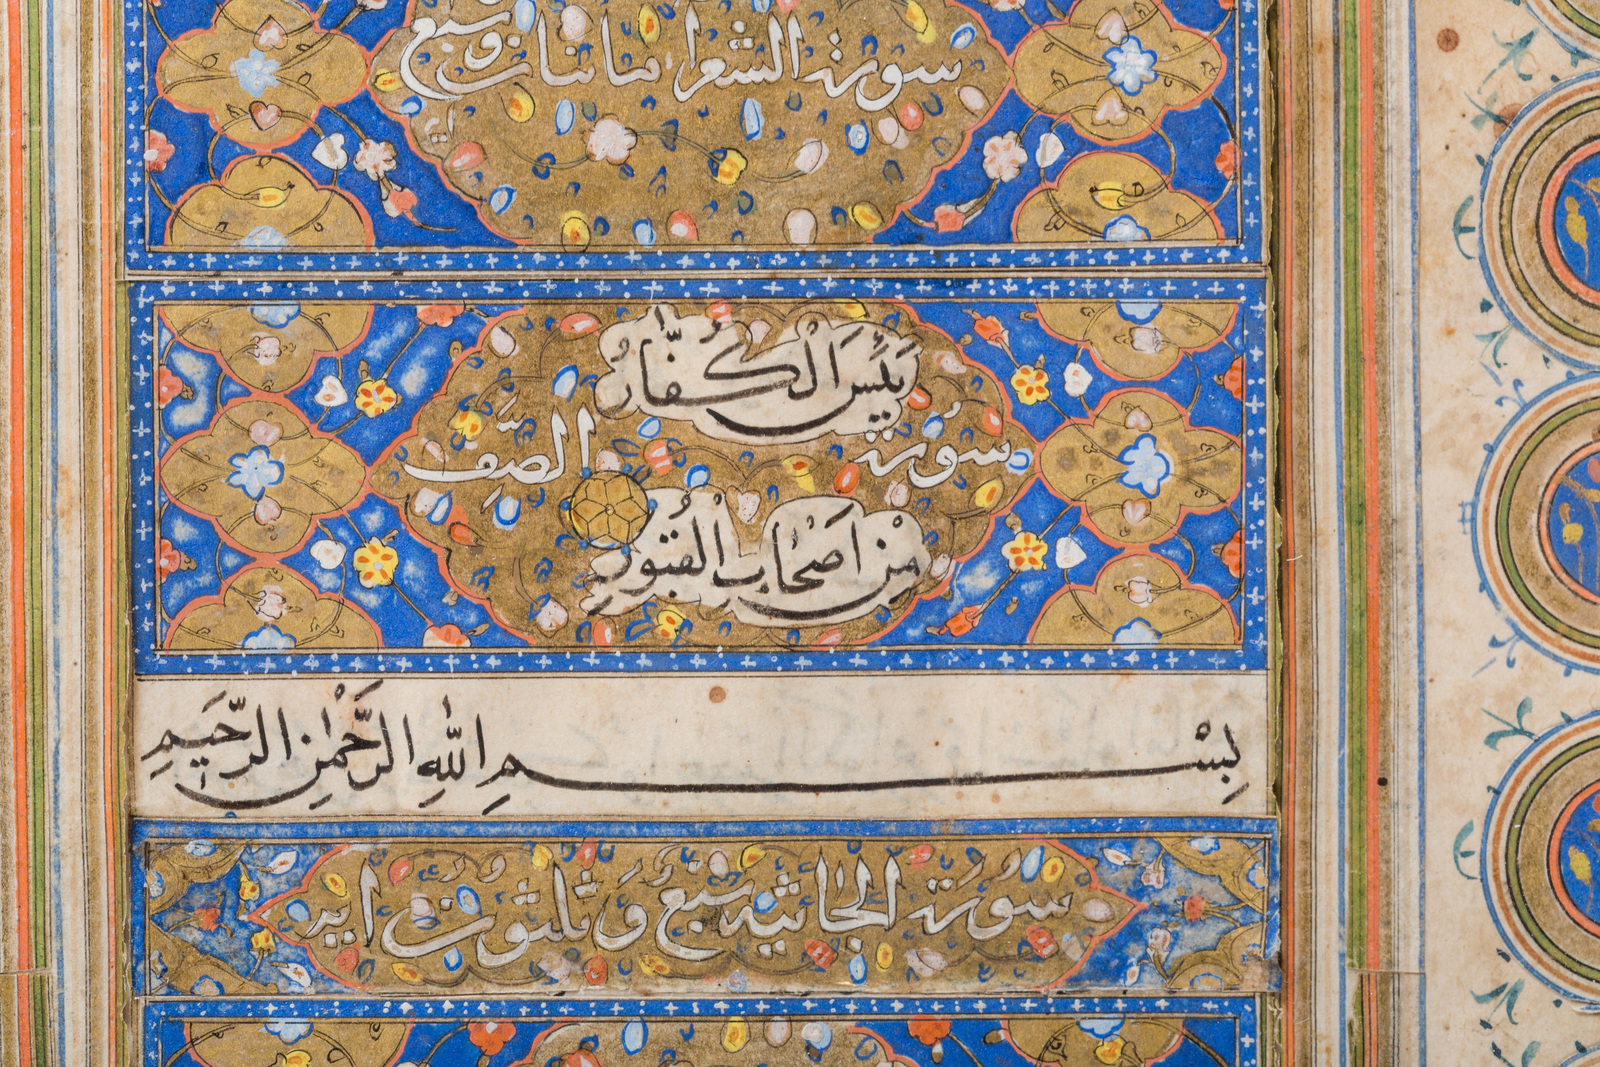 سورة الشعرا مائتان وسبع
يَئِسَ الْكُفَّارُ
سُورَة الصَّف
مِنْ اَصْحَابِ الْقُبُورِ
بِسْمِ اللّٰهِ الرَّحْمٰنِ الرَّحِيمِ
سُورَة الجاثيه سَبْع وَثلثون ايه